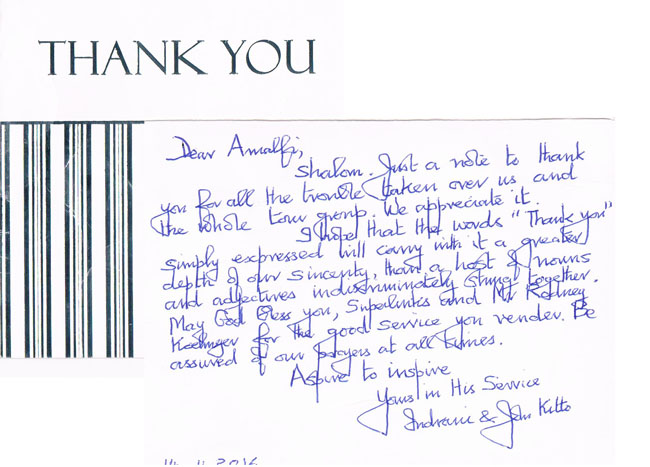 THANK YOU
Dear Amalfi,
Shalom. Just a note to thank
you for all the trouble taken over us and
the whole tour group. We appreciate it.
I hope that the words "Thank you"
simply expressed will carry with it a greater
depth of our sincerity, than a host of nouns
and adjectives indiscriminately strung together.
May God Bless you, Superlinks and Mr Rodney
for the good service you render. Be
assured of our prayers at all times.
Aspire to inspire
Yours in His Service
Indranie & John Kitto